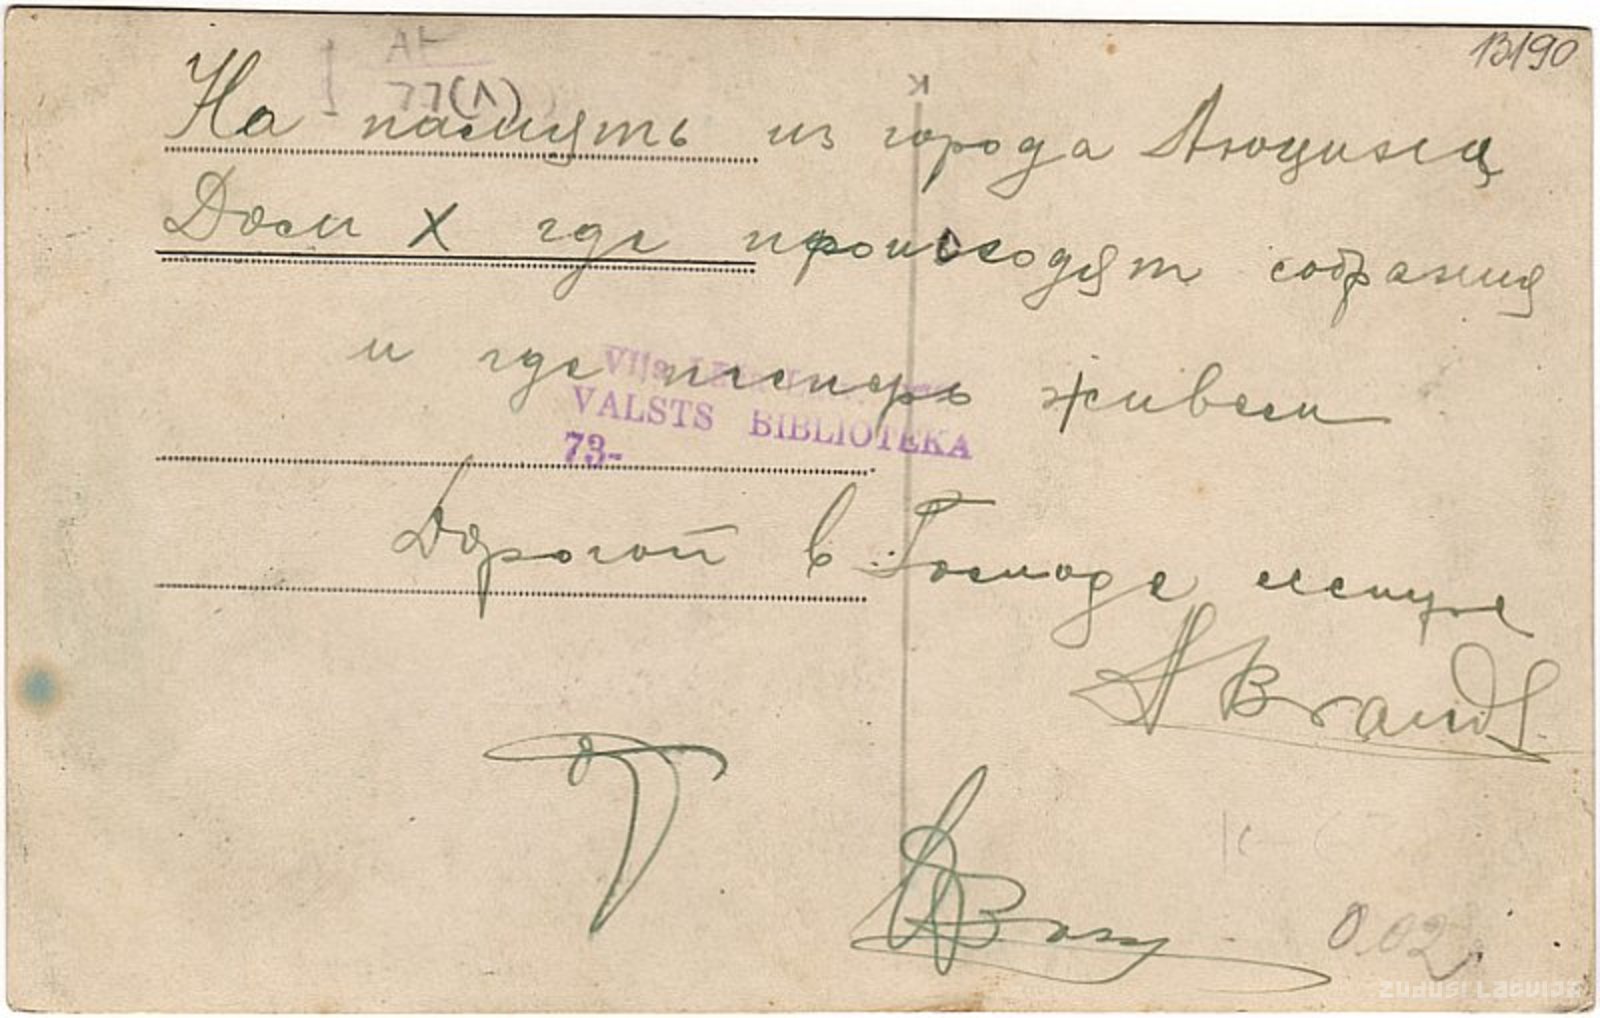 В190
АК
77(Л)
На память из города Люцина
Дом X где происходят собрания
и где теперь живем
VALSTS BIBLIOTEKA
73-
Дорогой в Господе сестре
A Brandt
0.02
Zudusi Latvija